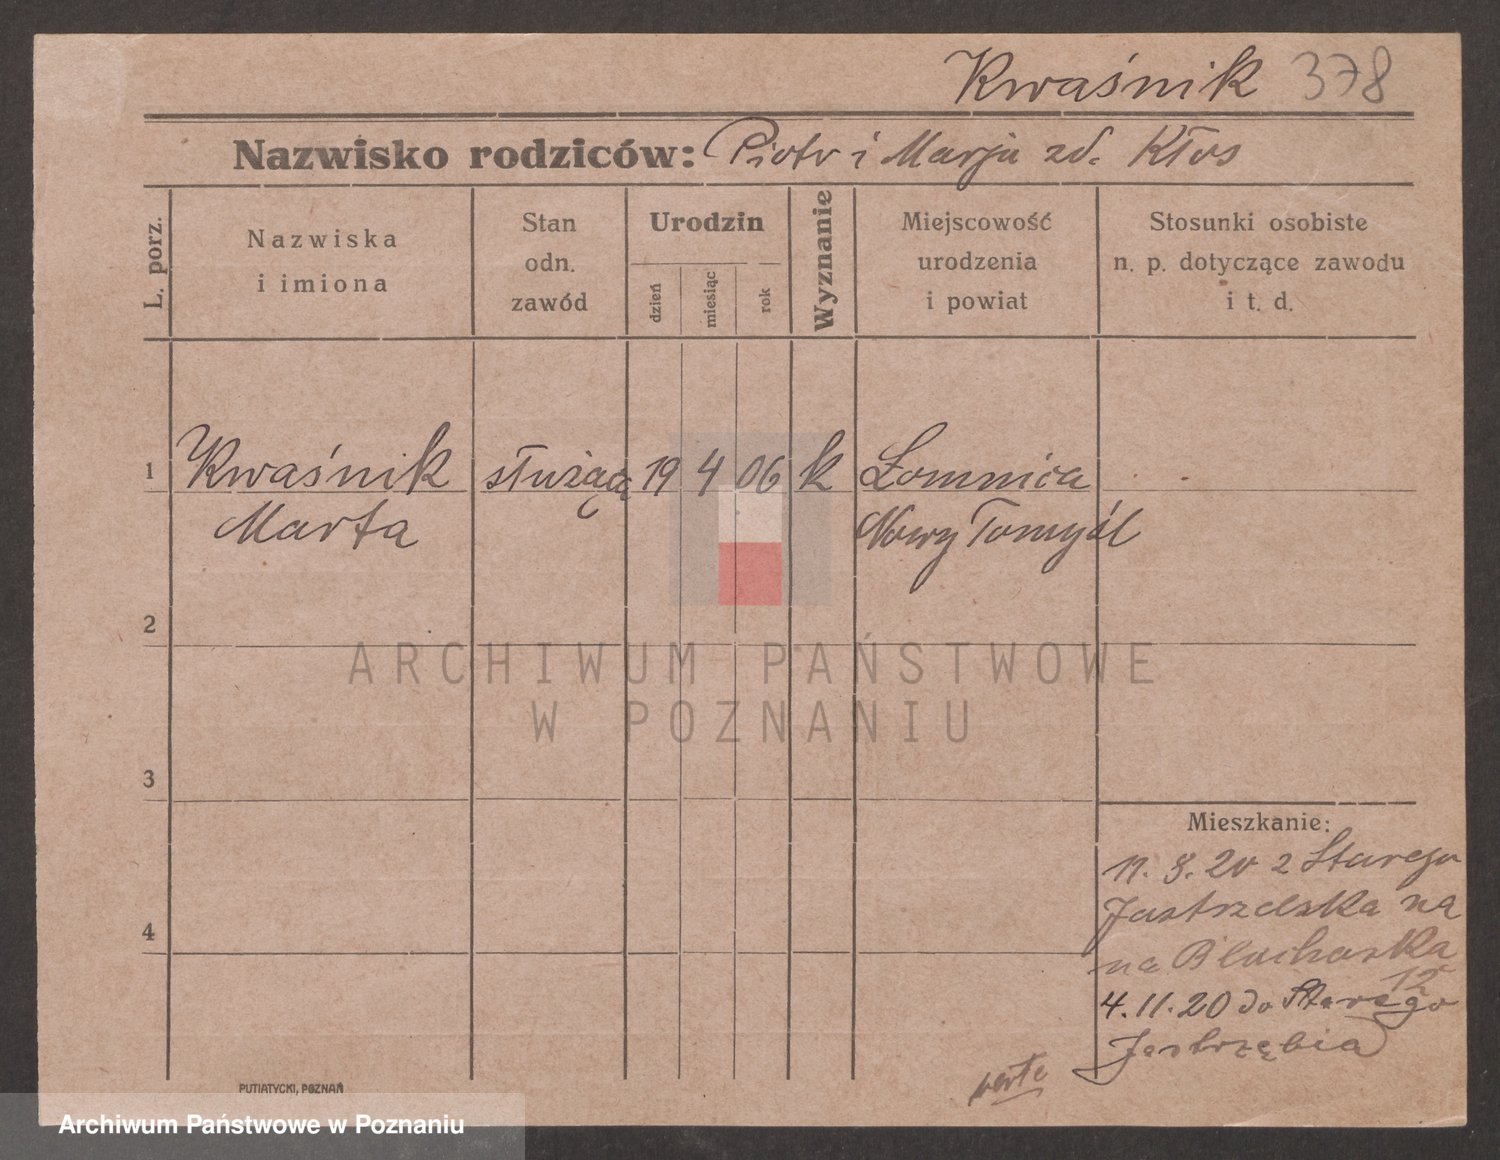 Kwaśnik 378
Nazwisko rodziców: Piotr i Marja zd. Kłos
L. porz.
Nazwiska
i imiona
Stan
odn.
zawód
Urodzin
dzień
miesiąc
rok
Wyznanie
Miejscowość
urodzenia
i powiat
Stosunki osobiste
n. p. dotyczące zawodu
i t. d.
1 Kwaśnik służąca 19 4 06 k Łomnica
Marta Nowy Tomyśl
2
3
4
ARCHIWUM PAŃSTWOWE
W POZNANIU
Mieszkanie:
11. 8. 20 z Starego
na
na Blacharska
12
4.11.20 do Starego
Jastrzębia
verte
PUTIATYCKI, POZNAŃ
Archiwum Państwowe w Poznaniu